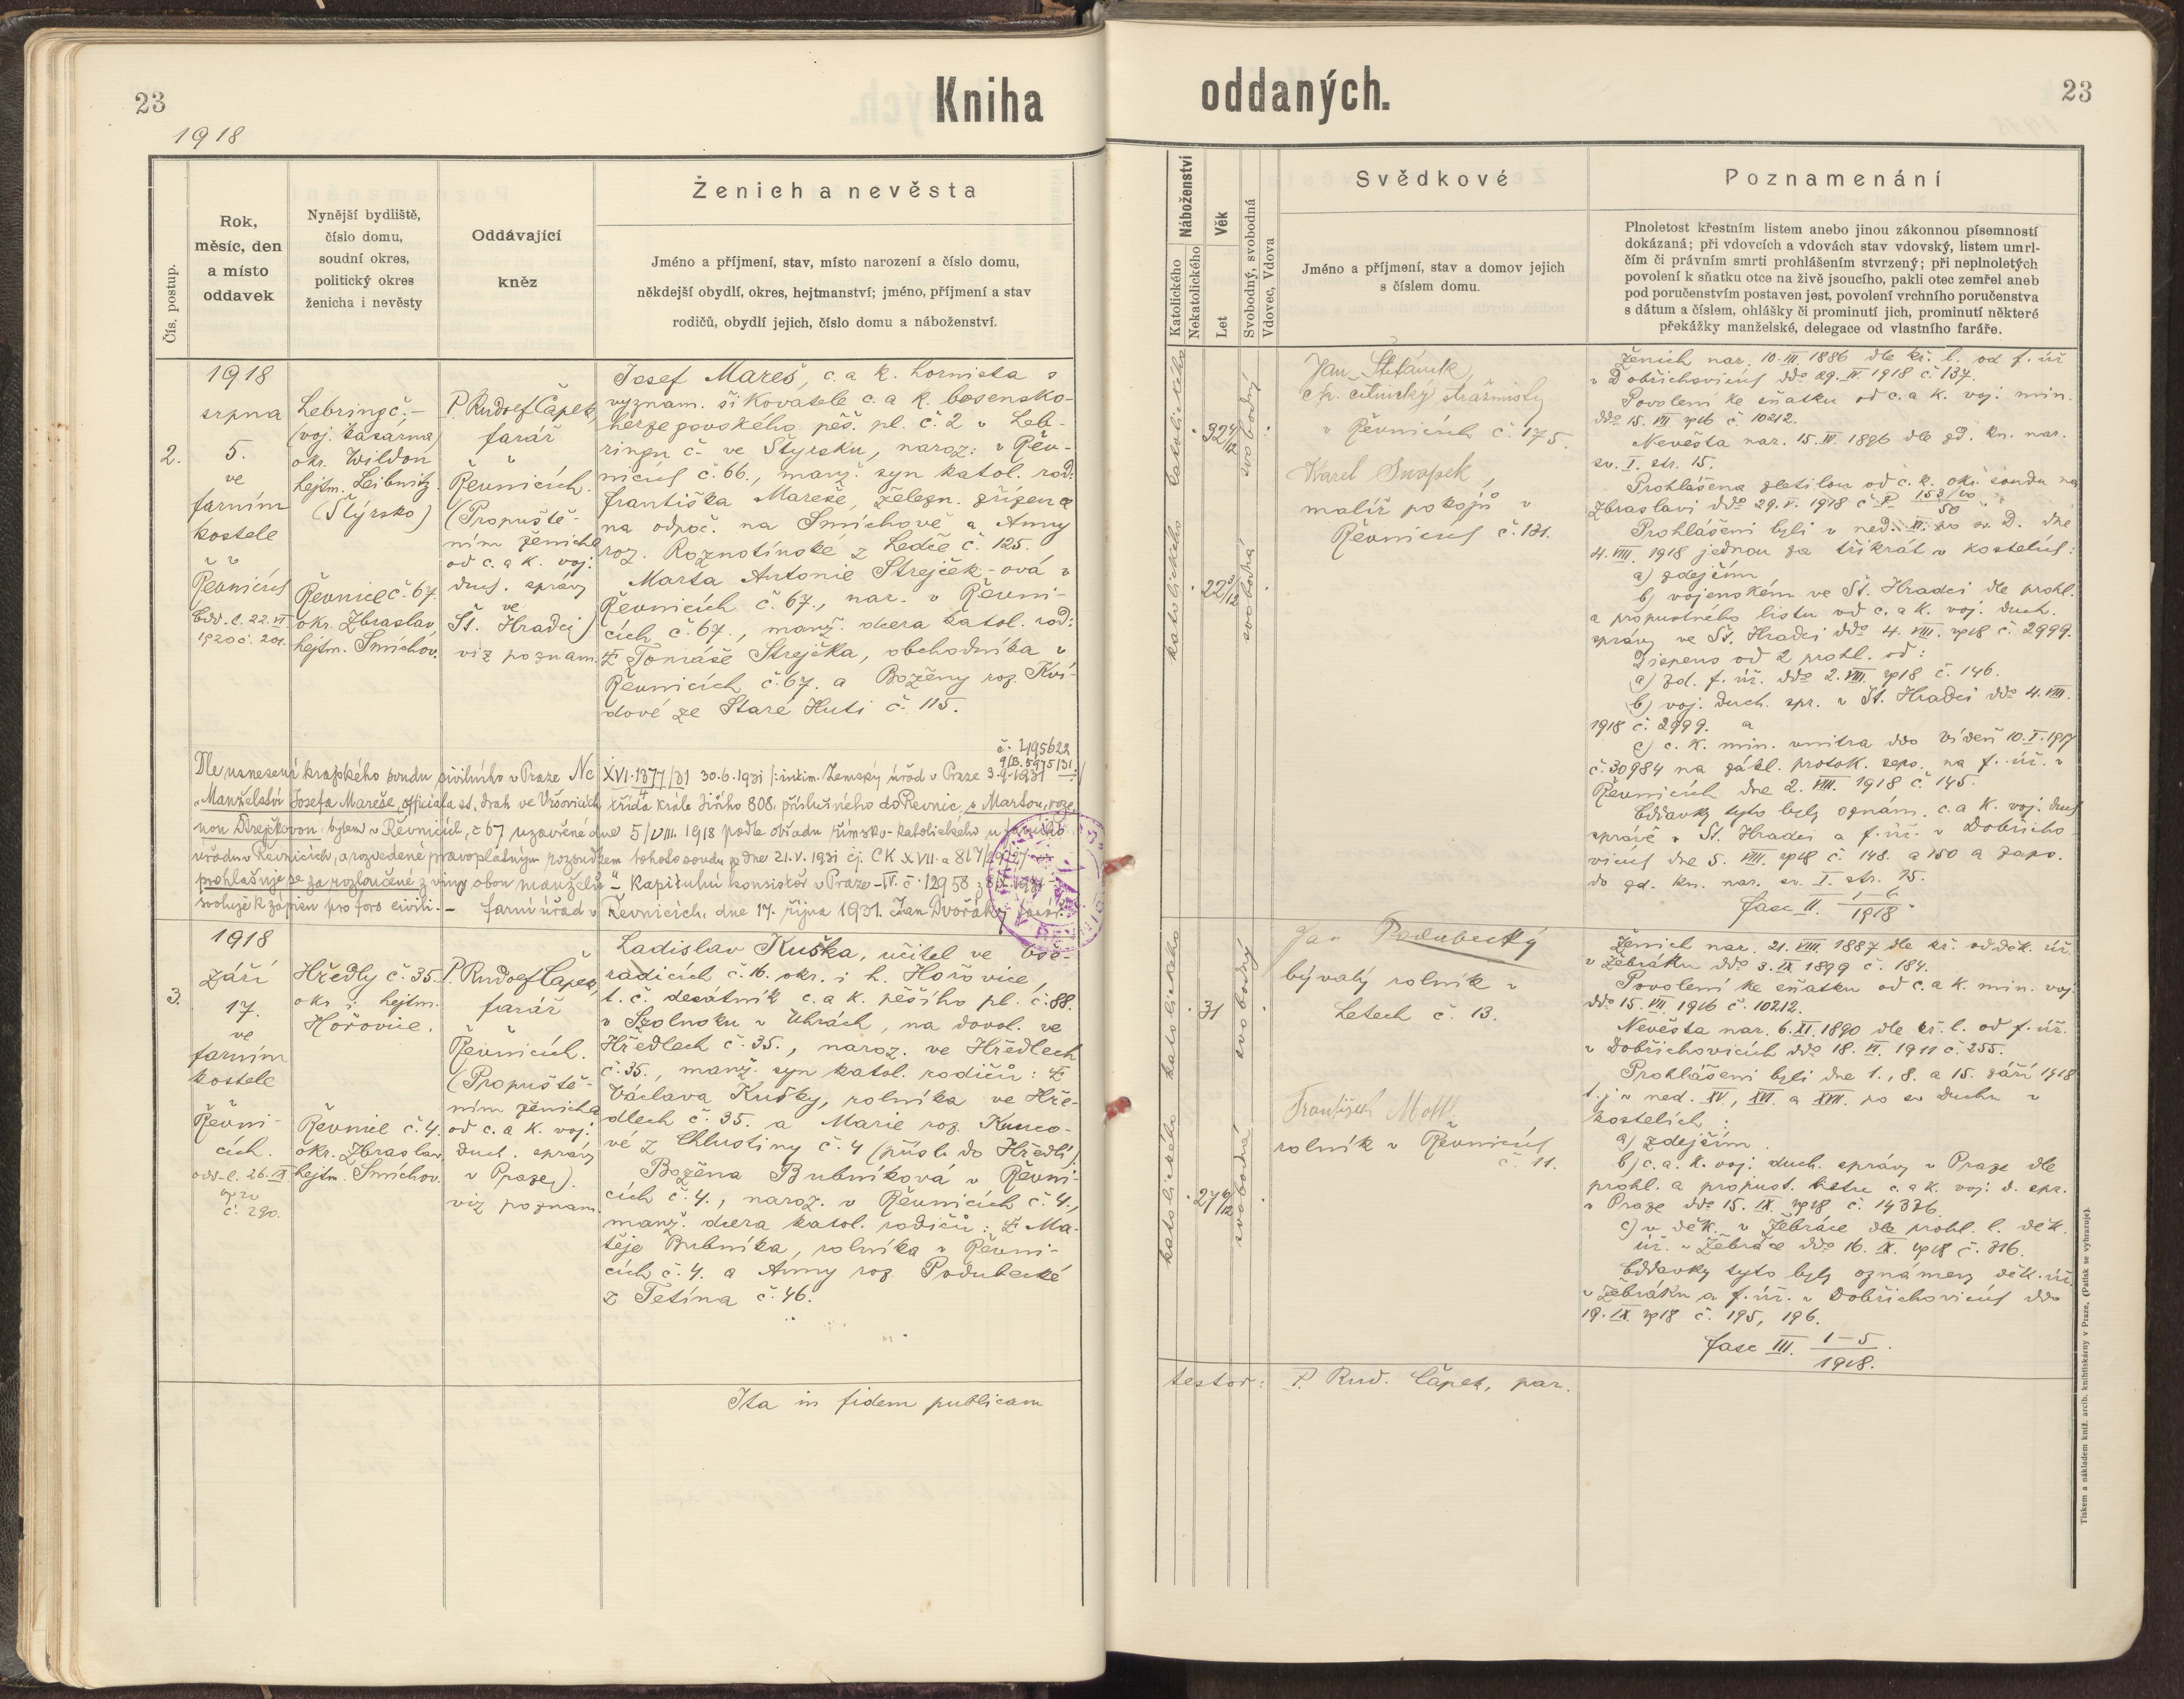 23
Kniha
oddaných.
23
1918
Čís. postup.
Rok,
měsíc, den
a místo
oddavek
Nynější bydliště,
číslo domu,
soudní okres,
politický okres
ženicha i nevěsty
Oddávající
kněz
Ženich a nevěsta
Jméno a příjmení, stav, místo narození a číslo domu,
někdejší obydlí, okres, hejtmanství; jméno, příjmení a stav
rodičů, obydlí jejich, číslo domu a náboženství.
Náboženství
Katolického
Nekatolického
Věk
Let
Svobodný, svobodná
Vdovec, Vdova
Svědkové
Jméno a příjmení, stav a domov jejich
s číslem domu.
Poznamenání
Plnoletost křestním listem anebo jinou zákonnou písemností
dokázaná; při vdovcích a vdovách stav vdovský, listem umrl-
čím či právním smrti prohlášením stvrzený; při neplnoletých
povolení k sňatku otce na živě jsoucího, pakli otec zemřel aneb
pod poručenstvím postaven jest, povolení vrchního poručenstva
s dátum a číslem, ohlášky či prominutí jich, prominutí některé
překážky manželské, delegace od vlastního faráře.
2.
1918
srpna
5.
ve
farním
kostele
v
Řevnicích
Odd. l. 22. VI
1920 č. 201.
Lebring č. –
(voj. kasárna)
okr. Wildon
hejtm. Leibnitz
(Štýrsko)
Řevnice č. 67.
okr. Zbraslav,
hejtm. Smíchov.
P. Rudolf Čápek,
farář
v
Řevnicích.
(Propuště-
ním ženicha
od c. a k. voj.
duch. správy
ve
Št. Hradci)
viz poznam.
Josef Mareš, c. a k. hornista s
vyznam. šikovatele c. a k. bosensko-
hercegovského pěš. pl. č. 2 v Leb-
ringu č – ve Štyrsku, naroz. v Řev-
nicích č. 66., manž. syn katol. rod.
Františka Mareše, železn. zřízence
na odpoč. na Smíchově a Anny
roz. Roznotínské z Ledče č. 125.
Marta Antonie Strejček-ová v
Řevnicích č. 67., nar. v Řevni-
cích č. 67., manž. dcera katol. rod:
Tomáše Strejčka, obchodníka v
Řevnicích č. 67. a Boženy roz. Kvi-
dové ze Staré Huti č. 115.
č. 495622
9/B. 5975/31
Dle usnesení krajského soudu civilního v Praze Nc XVI 1377/31 30.6.1931 /: intim. Zemský úřad v Praze 3.9.1931 :/
"Manželství Josefa Mareše, officiála st. drah ve Vršovicích, třída krále Jiřího 808, příslušného do Řevnic, s Martou, roze-
nou Strejčkovou, bytem v Řevnicích, č 67 uzavřené dne 5/VIII. 1918 podle obřadu římsko-katolického u farního
úřadu v Řevnicích, a rozvedené pravoplatným rozsudkem tohoto soudu ze dne 21.V.1931 čj. CK XVII. a 817/
prohlašuje se za rozloučené z viny obou manželů" – Kapitulní konsistoř v Praze – IV. č. 12958
svoluje k zápisu pro foro civili. – farní úřad v Řevnicích, dne 17. října 1931. Jan Dvořák, farář.
katolického
32 4/12
svobodný
katolického
22 3/12
svobodná
Jan Štefánek,
c. k. četnický strážmistr
v Řevnicích č. 175.
Karel Snopek,
malíř pokojů v
Řevnicích č. 131.
Ženich nar. 10. III. 1886 dle kř. l. od f. úř.
v Dobřichovicích ddo 29. IV. 1918 č. 137.
Povolení ke sňatku od c. a k. voj. min.
ddo 15. VII 1916 č. 10212.
Nevěsta nar. 15. IV. 1896 dle zd. kn. nar.
sv. I. str. 15.
Prohlášena zletilou od c. k. okr. soudu na
Zbraslavi ddo 29. V. 1918 č P 153/10
50
Prohlášeni byli v ned. XI. po sv. D. dne
4. VIII. 1918 jednou za třikrát v kostelích:
a) zdejším
b) vojenském ve Št. Hradci dle prohl.
a propustného listu od c. a k. voj. duch.
správy ve Št. Hradci ddo 4. VIII. 1918 č. 2999.
Dispens od 2 prohl. od:
a) zd. f. úř. ddo 2. VIII. 1918 č. 146.
b) voj. duch. spr. v Št. Hradci ddo 4. VIII.
1918 č. 2999. a
c) c. k. min. vnitra ddo Vídeň 10. I. 1917
č. 30984 na zákl. protok. seps. na f. úř. v
Řevnicích dne 2. VIII. 1918 č. 145.
Oddavky tyto byly oznám. c. a k. voj. duch
správě v Št. Hradci a f. úř. v Dobřicho-
vicích dne 5. VIII. 1918 č. 148. a 150 a zaps.
do zd. kn. nar. sv. I. str. 15.
Fasc II. 1–6
1918.
3.
1918
září
17.
ve
farním
kostele
v
Řevni-
cích.
odd. l. 26. IX
1920
č. 290.
Hředly č. 35.
okr. i hejtm.
Hořovice.
Řevnice č. 4.
okr. Zbraslav
hejtm. Smíchov.
P. Rudolf Čápek,
farář
v
Řevnicích.
(Propuště-
ním ženicha
od c. a k. voj.
duch. správy
v Praze).
viz poznam.
Ladislav Kuška, učitel ve Ose-
radicích č. 16. okr. i h. Hořovice,
t. č. desátník c. a k. pěšího pl. č. 88.
v Szolnoku v Uhrách, na dovol. ve
Hředlech č. 35., naroz. ve Hředlech
č. 35., manž. syn katol. rodičů:
Václava Kušky, rolníka ve Hře-
dlech č. 35. a Marie roz. Kunco-
vé z Chlustiny č. 4 (přísl. do Hředlí).
Božena Bubníková v Řevni-
cích č. 4., naroz. v Řevnicích č. 4.,
manž. dcera katol. rodičů: Ma-
těje Bubníka, rolníka v Řevni-
cích č. 4. a Anny roz. Podubecké
z Tetína č. 46.
katolického
31
svobodný
katolického
27
svobodná
Jan Podubecký
bývalý rolník v
Letech č. 13.
František Mottl
rolník v Řevnicích
č. 11.
Ženich nar. 21. VIII. 1887 dle kř. od děk. úř.
v Žebráku ddo 3. IX 1899 č. 184.
Povolení ke sňatku od c. a k. min. voj.
ddo 15. VII. 1916 č. 10212.
Nevěsta nar. 6. XI. 1890 dle kř. l. od f. úř.
v Dobřichovicích ddo 18. VI. 1911 č. 255.
Prohlášeni byli dne 1., 8. a 15. září 1918
t. j. v ned. XV., XVI. a XVII. po sv Duchu v
kostelích:
a) zdejším
b) c. a. k. voj. duch. správy v Praze dle
prohl. a propust. listu c. a k. voj. d. spr.
v Praze ddo 15. IX. 1918 č. 14376.
c) v děk. v Žebráce dle prohl. l. děk.
úř. v Žebráce ddo 16. IX. 1918 č. 316.
Oddavky tyto byly oznámeny děk. úř.
v Žebráku a f. úř. v Dobřichovicích ddo
19. IX. 1918 č. 195, 196.
Fasc III. 1–5
1918.
Ita in fidem publicam
testor: P. Rud. Čápek, par.
Tiskem a nákladem kníž. arcib. knihtiskárny v Praze. (Patisk se vyhrazuje).